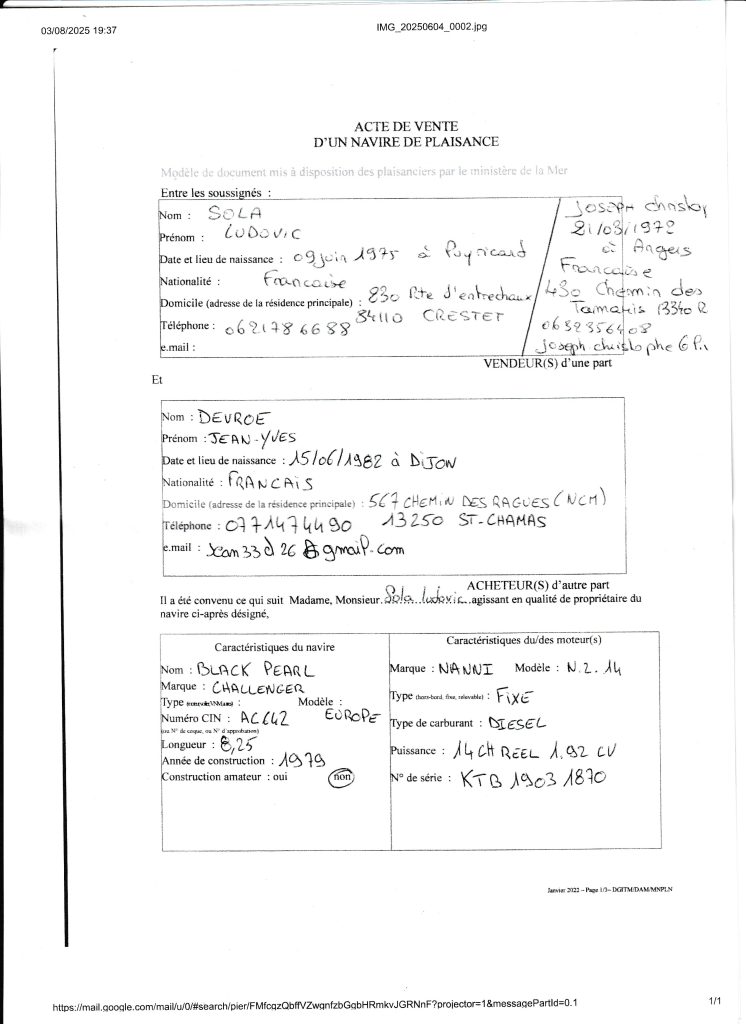 03/08/2025 19:37
IMG_20250604_0002.jpg
ACTE DE VENTE
D'UN NAVIRE DE PLAISANCE
Modèle de document mis à disposition des plaisanciers par le ministère de la Mer
Entre les soussignés :
Nom : SOLA
Prénom : LUDOVIC
Date et lieu de naissance : 09 juin 1975 à Puyricard
Nationalité : Francaise
Domicile (adresse de la résidence principale) : 830 Rte d'entrechaux
84110 CRESTET
Téléphone : 0621786688
e.mail :
Joseph
21/03/1972
à Angers
Francaise
430 Chemin des
Tamaris
Joseph christophe
VENDEUR(S) d'une part
Et
Nom : DEVROE
Prénom : JEAN-YVES
Date et lieu de naissance : 15/06/1982 à DIJON
Nationalité : FRANCAIS
Domicile (adresse de la résidence principale) : 567 CHEMIN DES RAGUES (NCM)
Téléphone : 0771474490 13250 ST-CHAMAS
e.mail : Jean33d26@gmail.com
ACHETEUR(S) d'autre part
Il a été convenu ce qui suit Madame, Monsieur Sola Ludovic agissant en qualité de propriétaire du
navire ci-après désigné,
Caractéristiques du navire
Nom : BLACK PEARL
Marque : CHALLENGER
Type : Modèle : EUROPE
Numéro CIN :
(ou N° de coque, ou N° d'approbation)
Longueur : 6,25
Année de construction : 1979
Construction amateur : oui non
Caractéristiques du/des moteur(s)
Marque : NANNI Modèle : N.2.14
Type (hors-bord, fixe, relevable) : FIXE
Type de carburant : DIESEL
Puissance : 14 CH REEL 1.92 CV
N° de série : KTB 1903 1870
Janvier 2022 – Page 1/3– DGITM/DAM/MNPLN
https://mail.google.com/mail/u/0/#search/pier/FMfcgzQbffVZwgnfzbGgbHRmkvJGRNnF?projector=1&messagePartId=0.1
1/1